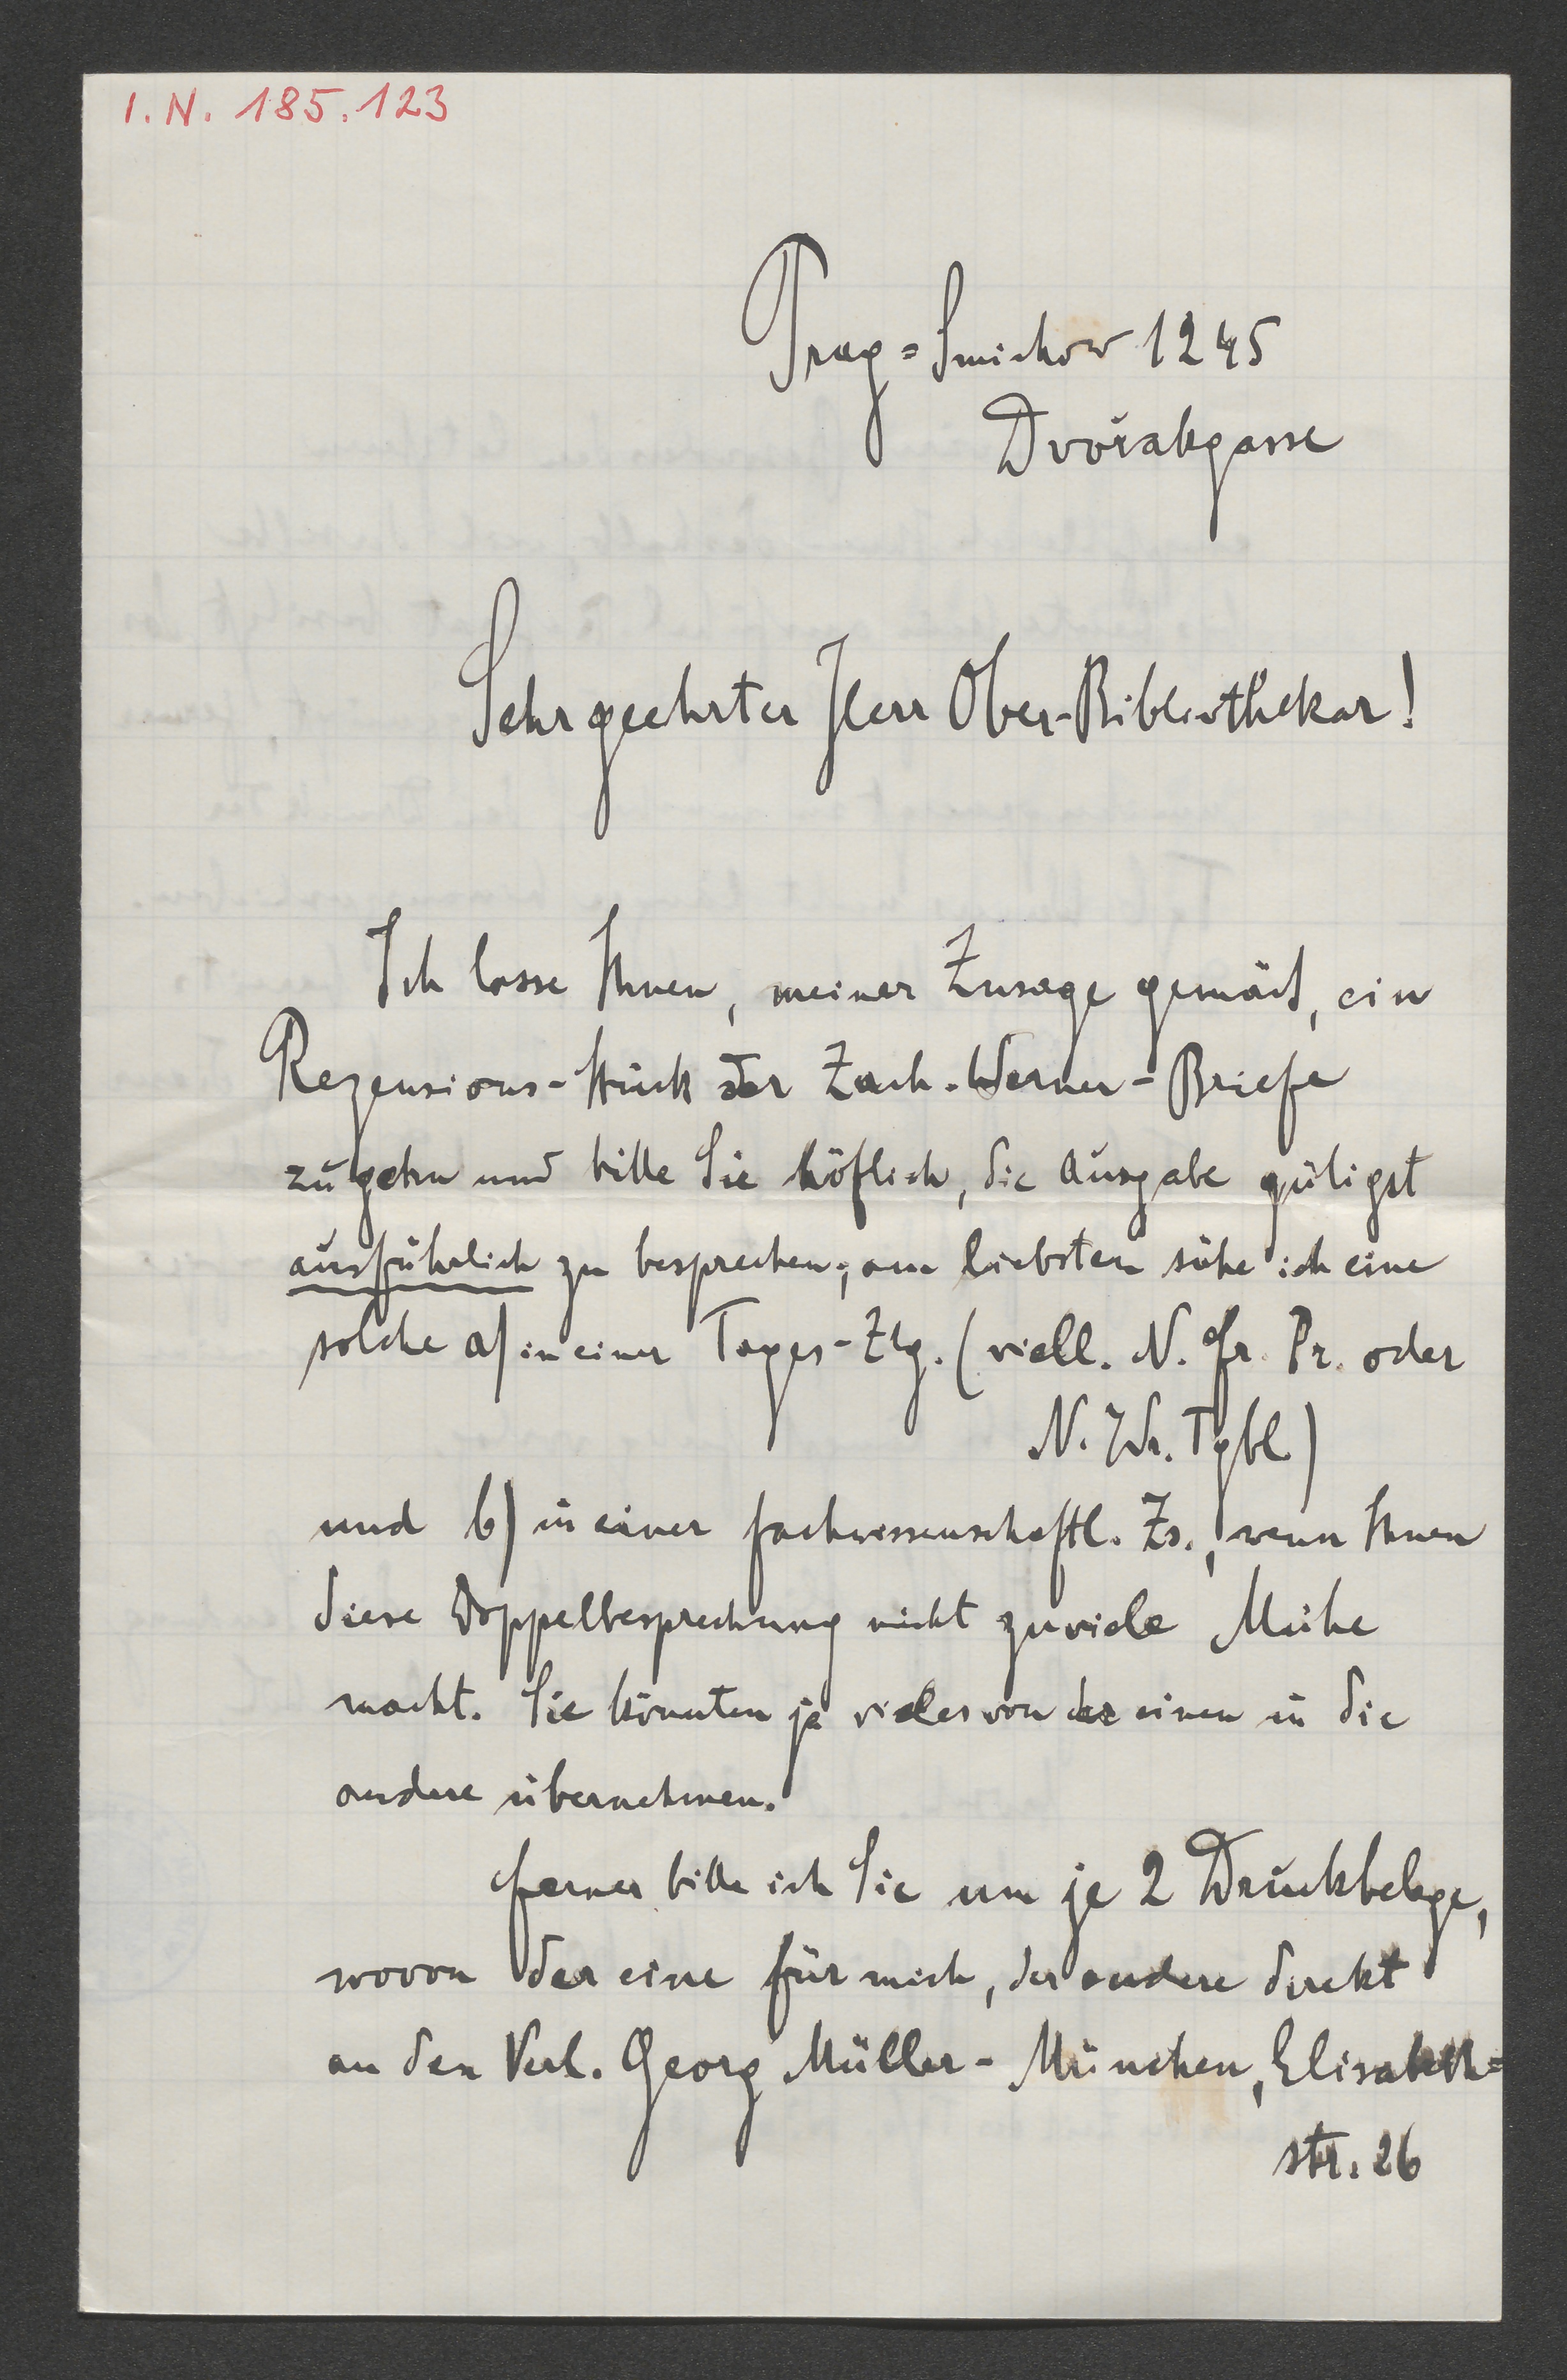 I. N. 185.123
Prag=Smichow 1245
Dvořakgasse
Sehr geehrter Herr Ober-Bibliothekar!
Ich lasse Ihnen, meiner Zusage gemäß, ein
Rezensions-Stück der Zach. Werner-Briefe
zugehn und bitte Sie höflich, die Ausgabe gütigst
ausführlich zu besprechen; am liebsten sähe ich eine
solche a) in einer Tages-Ztg. (viell. N. Fr. Pr. oder
N. W. Tgbl)
und b) in einer fachwissenschaftl. Zs., wenn Ihnen
diese Doppelbesprechung nicht zuviele Mühe
macht. Sie könnten ja vieles von der einen in die
andere übernehmen.
Ferner bitte ich Sie um je 2 Druckbelege,
wovon der eine für mich, der andere direkt
an den Verl. Georg Müller - München, Elisabeth=
str. 26